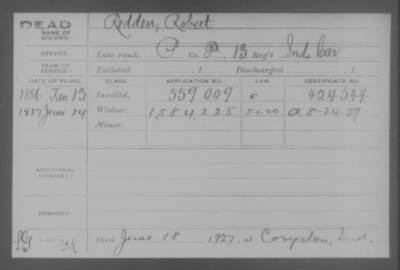 DEAD
NAME OF SOLDIER:
Redden, Robert
SERVICE:
Late rank, P Co. 13 Reg't Ind Cav
TERM OF SERVICE
Enlisted , 1 Discharged , 1
DATE OF FILING. CLASS. APPLICATION NO. LAW. CERTIFICATE NO.
1886 Jan 13 Invalid, 559 009 c 424 544
1927 June 24 Widow, 1,584,225 5-1-20 a 8-24-27
Minor,
ADDITIONAL SERVICES:
REMARKS:
Died June 18, 1927, at Corydon, Ind.